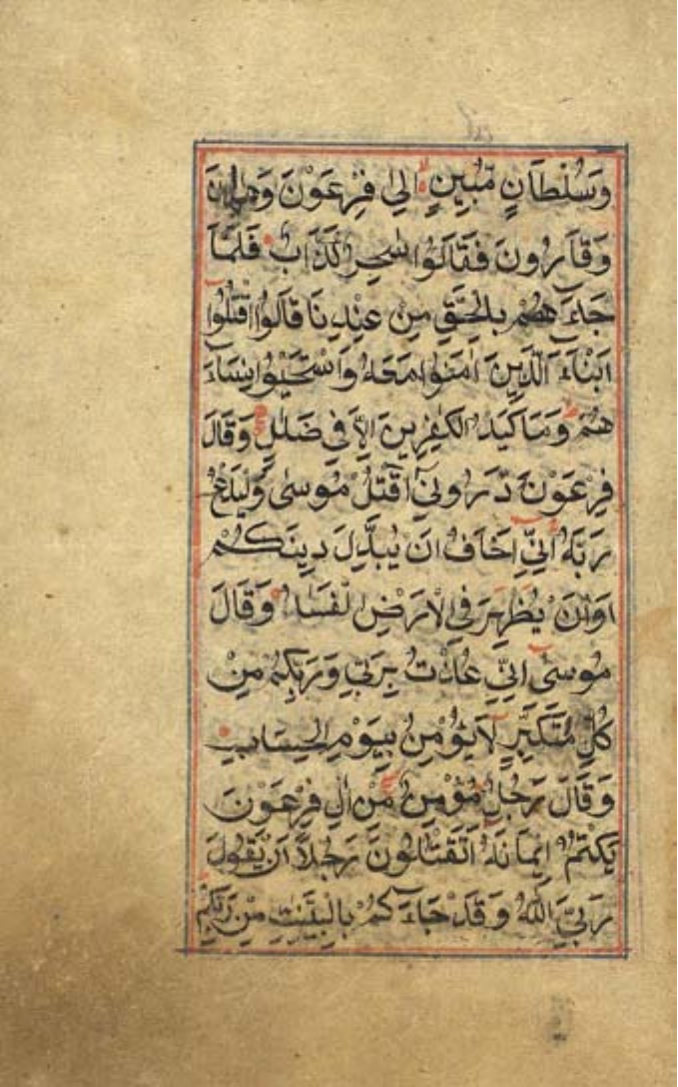 وَسُلْطَانٍ مُّبِينٍ اِلٰى فِرْعَوْنَ وَهَامٰنَ
وَقَارُونَ فَقَالَوُا سٰحِرٌ كَذَّابٌ فَلَمَّا
جَاءَ هُمْ بِالْحَقِّ مِنْ عِنْدِنَا قَالُوا اقْتُلُوا
اَبْنَاءَ الَّذِينَ اٰمَنُوا مَعَهُ وَاسْتَحْيُوا نِسَاءَ
هُمْ وَمَا كَيْدُ الْكٰفِرِينَ اِلَّا فِى ضَلٰلٍ وَقَالَ
فِرْعَوْنَ ذَرُونِى اَقْتُلْ مُوسٰى وَلْيَدْعُ
رَبَّهُ اِنِّى اَخَافُ اَنْ يُبَدِّلَ دِينَكُمْ
اَوْاَنْ يُظْهِرَ فِى الْاَرْضِ الْفَسَادَ وَقَالَ
مُوسٰى اِنِّى عُذْتُ بِرَبِّى وَرَبِّكُمْ مِنْ
كُلِّ مُتَكَبِّرٍ لَا يُؤْمِنُ بِيَوْمِ الْحِسَابِ
وَقَالَ رَجُلٌ مُؤْمِنٌ مِنْ اٰلِ فِرْعَوْنَ
يَكْتُمُ اِيمَانَهُ اَتَقْتُلُونَ رَجُلًا اَنْ يَقُولَ
رَبِّىَ اللّٰهُ وَقَدْ جَاءَكُمْ بِالْبَيِّنٰتِ مِنْ رَبِّكُمْ